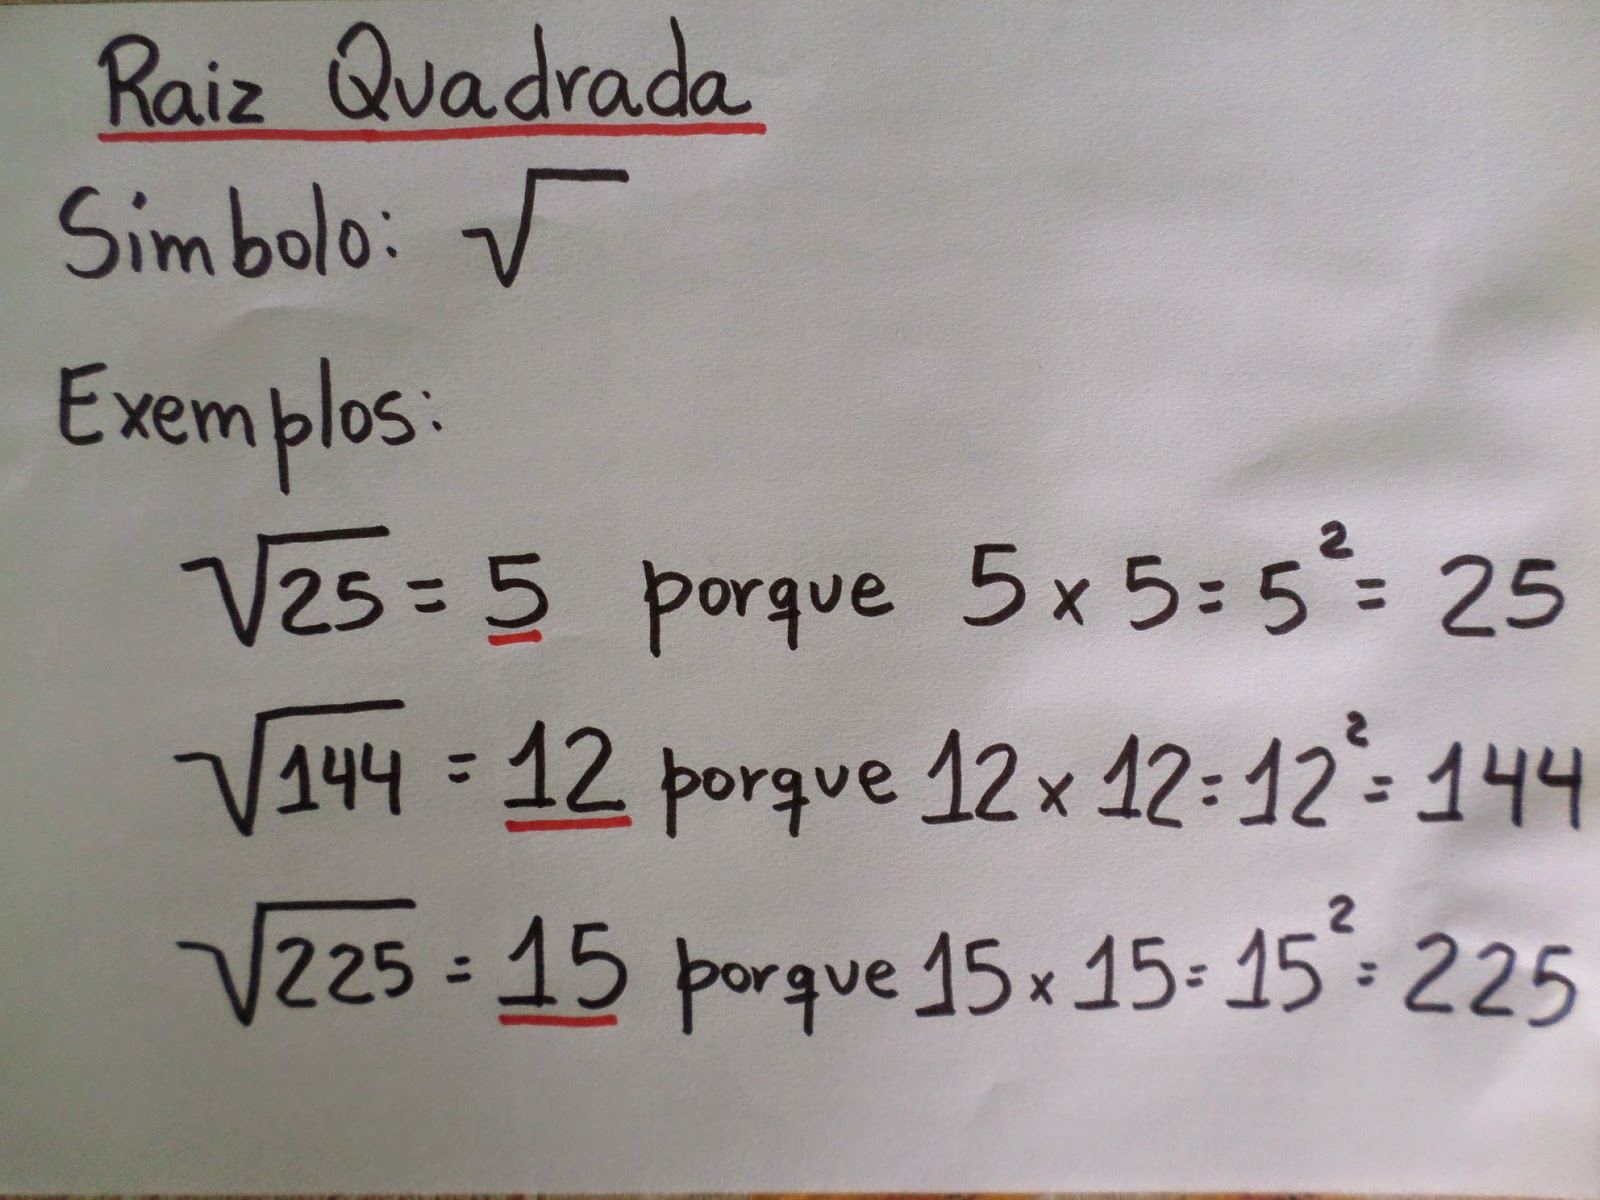 Raiz Quadrada
Simbolo: √
Exemplos:
√25 = 5 porque 5 x 5 = 5² = 25
√144 = 12 porque 12 x 12 = 12² = 144
√225 = 15 porque 15 x 15 = 15² = 225